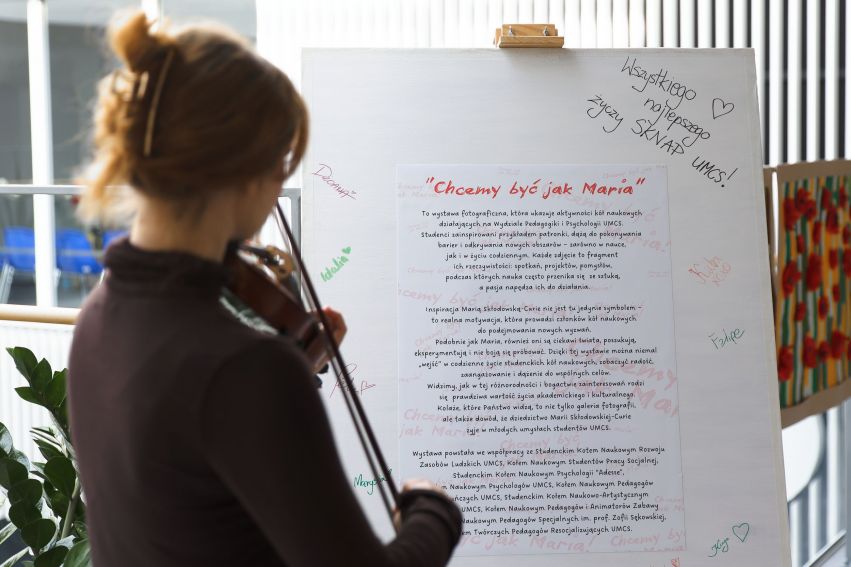 Wszystkiego
najlepszego
życzy SKNAP UMCS!
"Chcemy być jak Maria"
To wystawa fotograficzna, która ukazuje aktywności kół naukowych
działających na Wydziale Pedagogiki i Psychologii UMCS.
Studenci zainspirowani przykładem patronki, dążą do pokonywania
barier i odkrywania nowych obszarów – zarówno w nauce,
jak i w życiu codziennym. Każde zdjęcie to fragment
ich rzeczywistości: spotkań, projektów, pomysłów,
podczas których nauka często przenika się ze sztuką,
a pasja napędza ich do działania.
Inspiracja Marią Skłodowską-Curie nie jest tu jedynie symbolem –
to realna motywacja, która prowadzi członków kół naukowych
do podejmowania nowych wyzwań.
Podobnie jak Maria, również oni są ciekawi świata, poszukują,
eksperymentują i nie boją się próbować. Dzięki tej wystawie można niemal
„wejść" w codzienne życie studenckich kół naukowych, zobaczyć radość,
zaangażowanie i dążenie do wspólnych celów.
Widzimy, jak w tej różnorodności i bogactwie zainteresowań rodzi
się prawdziwa wartość życia akademickiego i kulturalnego.
Kolaże, które Państwo widzą, to nie tylko galeria fotografii,
ale także dowód, że dziedzictwo Marii Skłodowskiej-Curie
żyje w młodych umysłach studentów UMCS.
Wystawa powstała we współpracy ze Studenckim Kołem Naukowym Rozwoju
Zasobów Ludzkich UMCS, Kołem Naukowym Studentów Pracy Socjalnej,
Studenckim Kołem Naukowym Psychologii "Adesse",
Naukowym Psychologów UMCS, Kołem Naukowym Pedagogów
UMCS, Studenckim Kołem Naukowo-Artystycznym
UMCS, Kołem Naukowym Pedagogów i Animatorów Zabawy
Naukowym Pedagogów Specjalnych im. prof. Zofii Sękowskiej,
Twórczych Pedagogów Resocjalizujących UMCS.
Idalia
Kinga